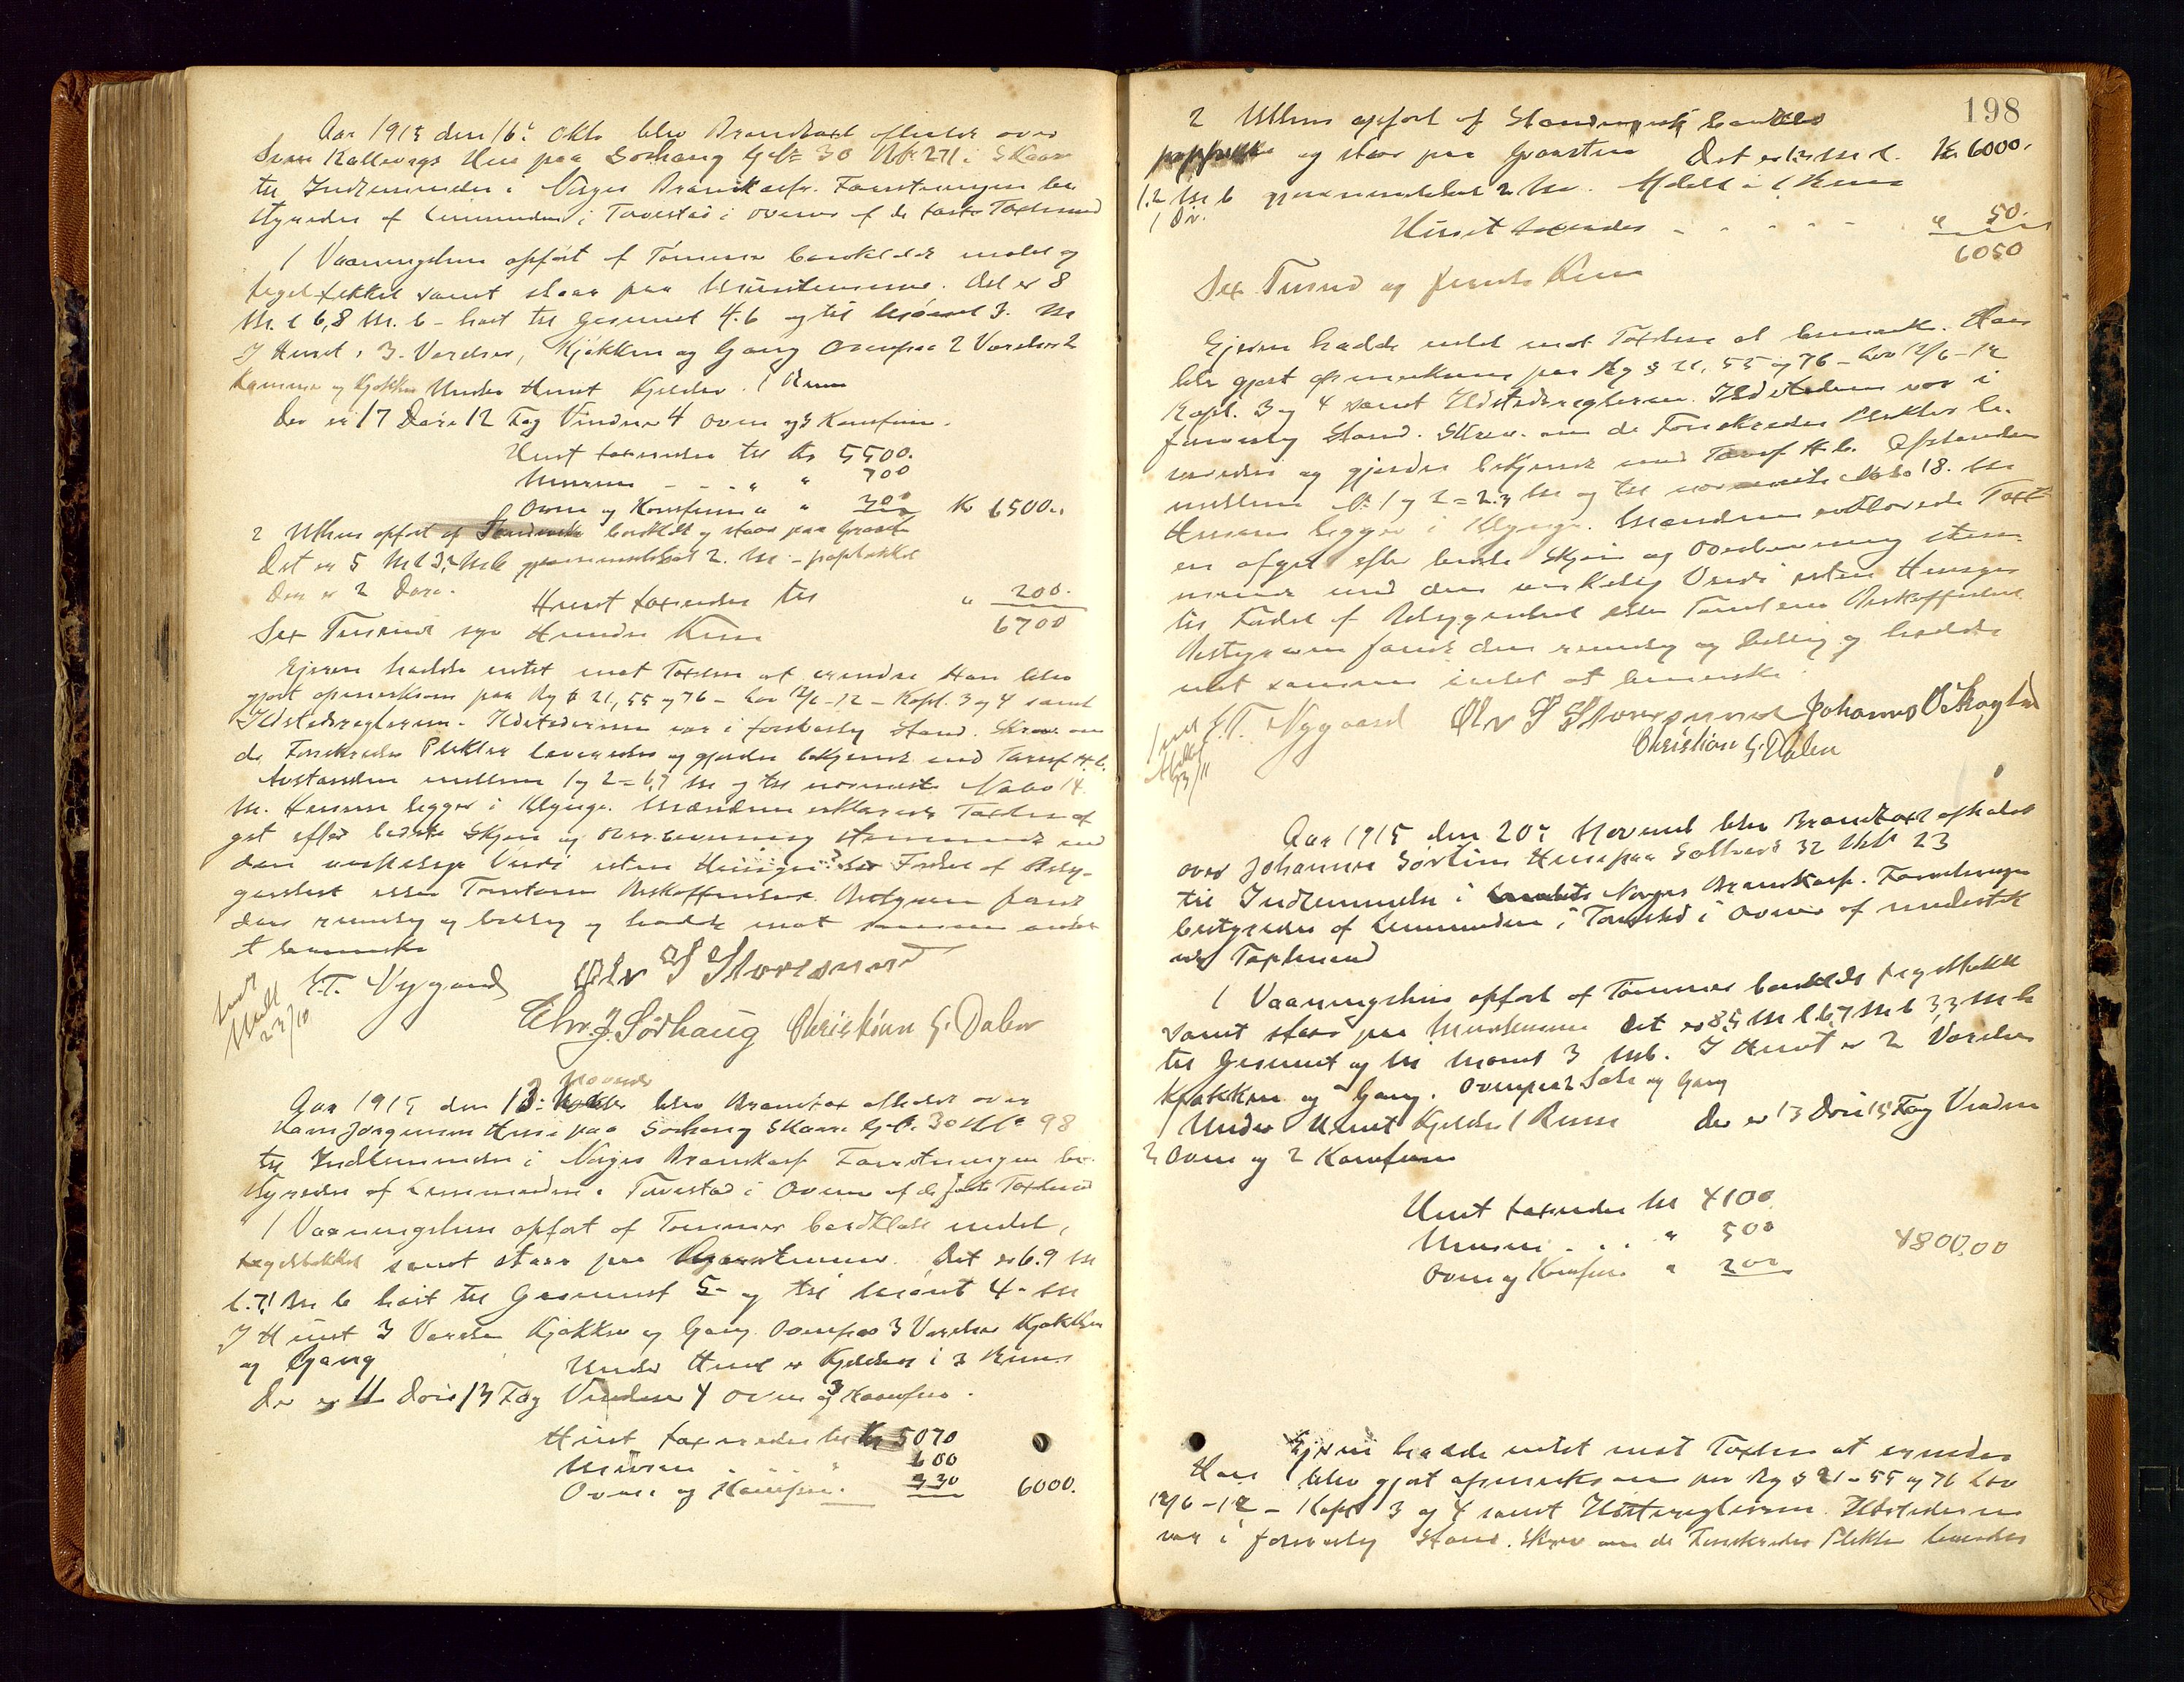 Aar 1915 den 16de Okto blev Brandtaxt afholdt over
Sven Kallevags Huse paa Sørhaug G.No 30 B.No 271 i Skaare
til Indlemmelse i Norges Brandkasse. Forretningen be
styredes af Lensmanden i Torvestad i Overvær af de faste Taxtmænd
1 Vaaningshus opført af Tømmer bordklædt malet og
tegltækket samt staar paa Murstensmur. Det er 8
M. l 6,8 M. b - høit til Gesimset 4.6 og til Mønet 3. M
I Huset 3 Værelser, Kjøkken og Gang Ovenpaa 2 Værelser 2
Kammer og Kjøkken Under Huset Kjelder 1 Rum
Der er 17 Døre 12 Fag Vinduer 4 Ovne og 3 Komfurer.
Huset taxeredes til Kr 5500.
Muren - - - " " 700
Ovne og Komfurer " " 300 Kr 6500..
2 Uthus opført af bordklædt og staar paa Graasten
Det er 5 M l 3,2 M b gjennemsnitshøit 2. M - paptækket
Der er 2 Døre.
Huset taxeredes til " 200.
Sex Tusinde syv Hundre Kroner 6700
Ejeren hadde intet mot Taxten at erindre Han blev
gjort opmerksom paa Ry § 21, 55 og 76 - Lov 12/6-12 - Kapt. 3 og 4 samt
Ildstedsreglerne. Ildstederne var i forsvarlig Stand. Skrev om
de Forsikredes Plikter leveredes og gjordes bekjendt med Tarif H.b.
Avstanden mellem 1 og 2 = 6,7 M og til nærmeste Nabo 14
M. Husene ligger i Klynge. Mændene erklærede Taxten af
get efter bedste Skjøn og Overbevisning stemmende med
den virkelige Værdi uten Hensyn til Fordel af Beby-
gelsen eller Tomtens Beskaffenhed. Bestyreren fandt
den rimelig og billig og hadde mot samme intet
at bemerke
E.T. Nygaard Olv S Storesund
Chr. J. Sørhaug Christian G. Dalen
23/10
November
Aar 1915 den 13. blev Brandtaxt afholdt over
Hans Jørgensens Huse paa Sørhaug Skaare G.No. 30 B.No 98
til Indlemmelse i Norges Brandkasse Forretningen be-
styredes af Lensmanden i Torvestad i Overvær af de faste Taxtmænd
1 Vaaningshus opført af Tømmer bordklædt malet,
tegltækket samt staar paa Graastensmur. Det er 6.9 M
l. 7.1 M b høit til Gesimset 5- og til Mønet 4- M
I Huset 3 Værelser Kjøkken og Gang Ovenpaa 3 Værelser Kjøkken
og Gang Under Huset er Kjelder i 3 Rum
Der er 11 Døre 13 Fag Vinduer 4 Ovne og 3 Komfurer.
Huset taxeredes til Kr 5070
Muren - - " 600
Ovne og Komfurer. 330 6000.
198
2 Uthus opført af Standerverk bordklædt
og staar paa Graasten Det er 1.3 M l. Kr 6000.
1.2 M b gjennemsnitshøit 2 M. Afdelt i 1 Rum
1 Dør.
Huset taxeredes - - - - - " 50.
6050
Sex Tusind og femti Kroner
Ejeren hadde intet mot Taxten at bemerke. Han
blev gjort opmerksom paa Ry § 21, 55 og 76 - Lov 12/6-12
Kapt. 3 og 4 samt Ildstedsreglerne. Ildstederne var i
forsvarlig Stand. Skrev om de Forsikredes Plikter le-
veredes og gjordes bekjendt med Tarif H.b. Afstanden
mellem No 1 og 2 = 2.3 M og til nærmeste Nabo 18. M
Husene ligger i Klynge. Mændene erklærede Taxt-
en afgit efter bedste Skjøn og Overbevisning stem-
mende med den virkelig Værdi uten Hensyn
til Fordel af Bebyggelsen eller Tomtens Beskaffenhed.
Bestyreren fandt den rimelig og billig og hadde
mot samme intet at bemerke
E.T. Nygaard Olv S Storesund Johannes O Skogland
Christian G. Dalen
23/11
Aar 1915 den 20de Novemb blev Brandtaxt afholdt
over Johannes Sørlins Huse paa Solbero 32 B.No 23
til Indlemmelse i Norges Brandkasse. Forretningen
bestyredes af Lensmanden i Torvestad i Overvær af undertegnede
Taxtmænd
1 Vaaningshus opført af Tømmer bordklædt tegltækket
samt staar paa Murstensmur Det er 8,5 M l 6,7 M b 3,3 M h
til Gesimset og til Mønet 3 M. I Huset er 2 Værelser
Kjøkken og Gang. Ovenpaa 2 Sale og Gang
Under Huset Kjelder 1 Rum Der er 13 Døre 15 Fag Vinduer
2 Ovne og 2 Komfurer
Huset taxeredes til 4100
Muren . . . " 500
Ovne og Komfurer " 200 4800,00
Ejeren hadde intet mot Taxten at erindre
Han blev gjort opmerksom paa Ry § 21 - 55 og 76 Lov
12/6-12 - Kapt 3 og 4 samt Ildstedsreglerne. Ildstederne
var i forsvarlig Stand. Skrev om de Forsikredes Plikter leveredes